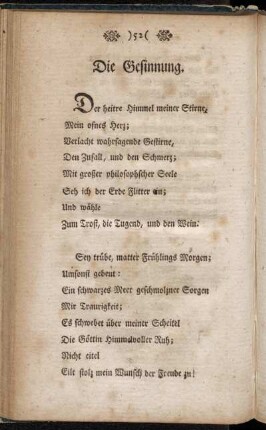 )52(
Die Gesinnung.
Der heitre Himmel meiner Stirne,
Mein ofnes Herz;
Verlacht wahrsagende Gestirne,
Den Zufall, und den Schmerz;
Mit großer philosophscher Seele
Seh ich der Erde Flitter ein;
Und wähle
Zum Trost, die Tugend, und den Wein.
Sey trübe, matter Frühlings Morgen;
Umsonst gebeut:
Ein schwarzes Meer geschmolzner Sorgen
Mir Traurigkeit;
Es schwebet über meiner Scheitel
Die Göttin Himmelvoller Ruh;
Nicht eitel
Eilt stolz mein Wunsch der Freude zu!